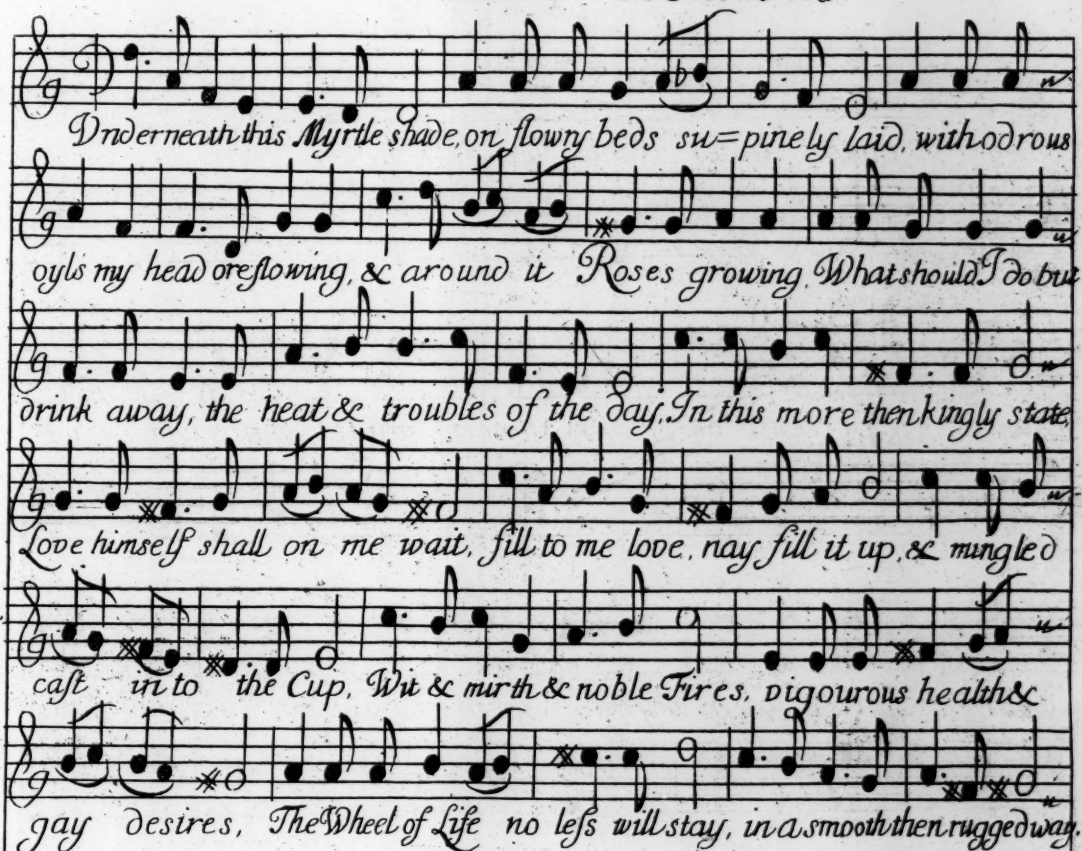 Vnderneath this Myrtle shade, on flowry beds su=pinely laid, with odrous
oyls my head oreflowing, & around it Roses growing, What should I do but
drink away, the heat & troubles of the day, In this more then kingly state,
Love himself shall on me wait, fill to me love, nay fill it up, & mingled
cast in to the Cup, Wit & mirth & noble Fires, vigourous health &
gay desires, The Wheel of Life no less will stay, in a smooth then rugged way.